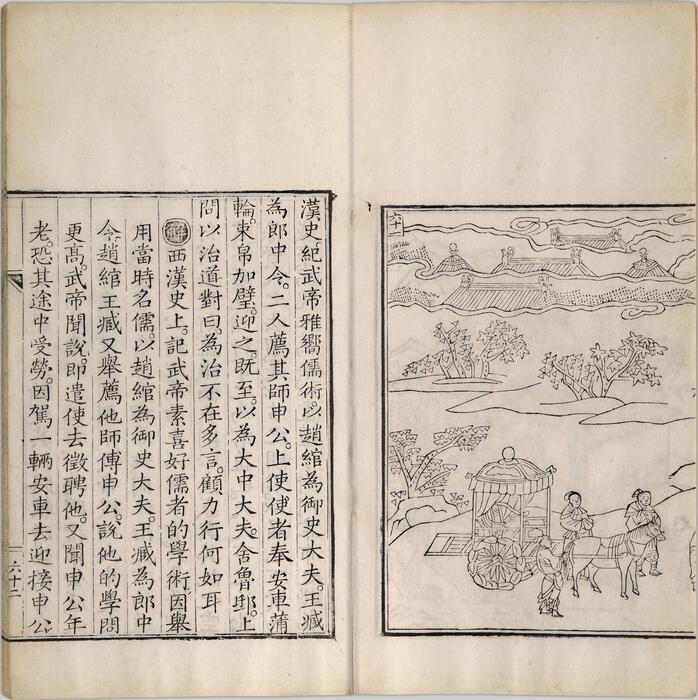 六十一
漢史紀武帝雅嚮儒術。以趙綰為御史大夫。王臧
為郎中令。二人薦其師申公。上使使者奉安車蒲
輪。束帛加璧。迎之。既至。以為大中大夫。舍魯邸。上
問以治道對曰。為治不在多言。顧力行何如耳
解西漢史上。記武帝素喜好儒者的學術。因舉
用當時名儒。以趙綰為御史大夫。王臧為郎中
令。趙綰王臧又舉薦他師傅申公。說他的學問
更高。武帝聞說。即遣使去徵聘他。又聞申公年
老。恐其途中受勞。因駕一輛安車去迎接申公
六十二